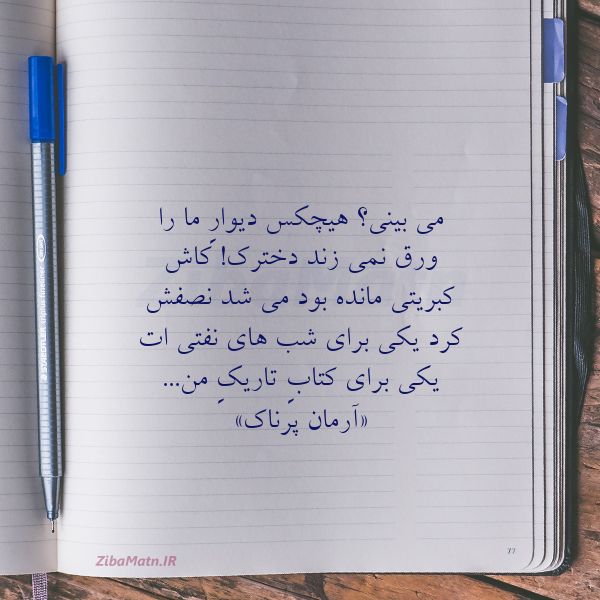 می بینی؟ هیچکس دیوارِ ما را
ورق نمی زند دخترک! کاش
کبریتی مانده بود می شد نصفش
کرد یکی برای شب های نفتی ات
یکی برای کتابِ تاریکِ من...
«آرمان پرناک»
ZibaMatn.IR
77